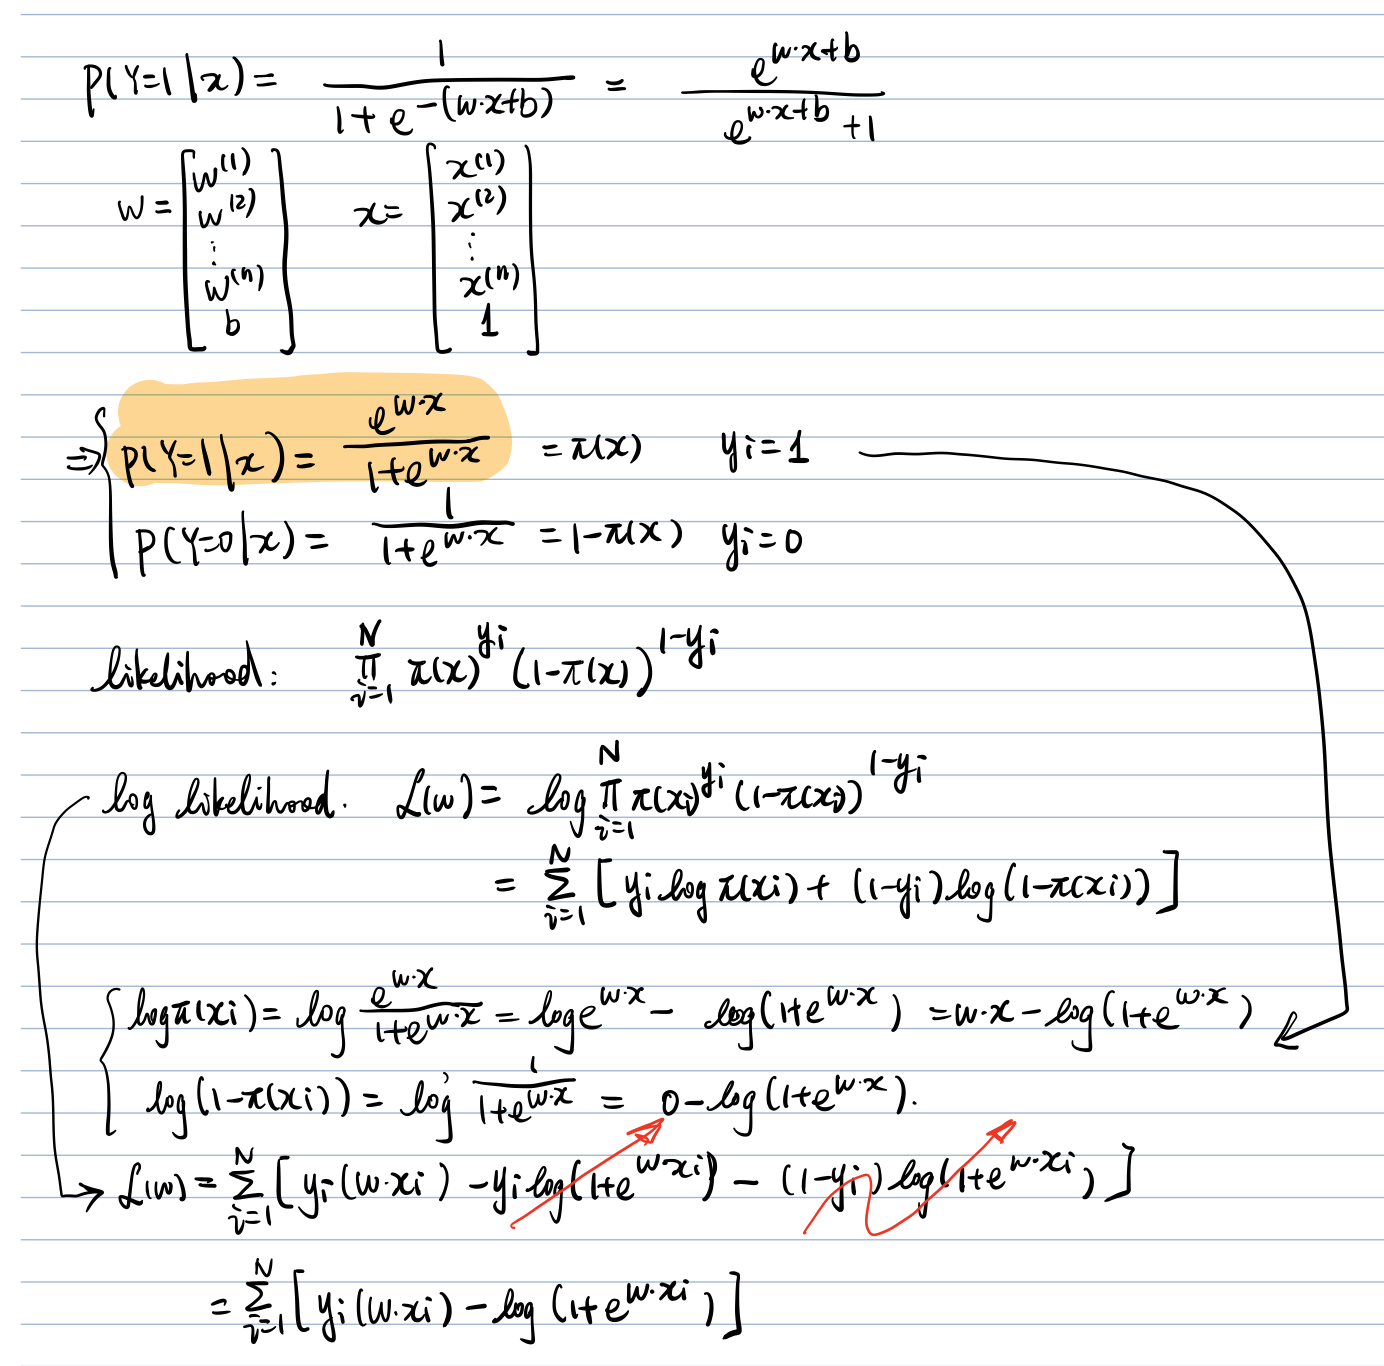 P(Y=1|x) = 1 / (1+e^{-(w·x+b)}) = e^{w·x+b} / (e^{w·x+b}+1)
w = [w^{(1)} w^{(2)} ⋮ w^{(n)} b]   x = [x^{(1)} x^{(2)} ⋮ x^{(n)} 1]
⇒ { P(Y=1|x) = e^{w·x} / (1+e^{w·x}) = π(x)   yi=1
P(Y=0|x) = 1 / (1+e^{w·x}) = 1-π(x)   yi=0
likelihood: ∏_{i=1}^{N} π(x)^{yi} (1-π(x))^{1-yi}
log likelihood. L(w) = log ∏_{i=1}^{N} π(xi)^{yi} (1-π(xi))^{1-yi}
= ∑_{i=1}^{N} [yi log π(xi) + (1-yi) log(1-π(xi))]
{ log π(xi) = log e^{w·x} / (1+e^{w·x}) = log e^{w·x} - log(1+e^{w·x}) = w·x - log(1+e^{w·x})
log(1-π(xi)) = log 1 / (1+e^{w·x}) = 0 - log(1+e^{w·x}).
L(w) = ∑_{i=1}^{N} [yi(w·xi) - yi log(1+e^{w·xi}) - (1-yi) log(1+e^{w·xi})]
= ∑_{i=1}^{N} [yi(w·xi) - log(1+e^{w·xi})]